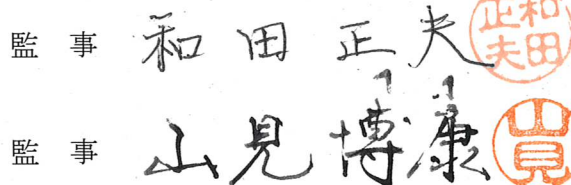 監事 和田正夫 和田正夫
監事 山見博康 山見